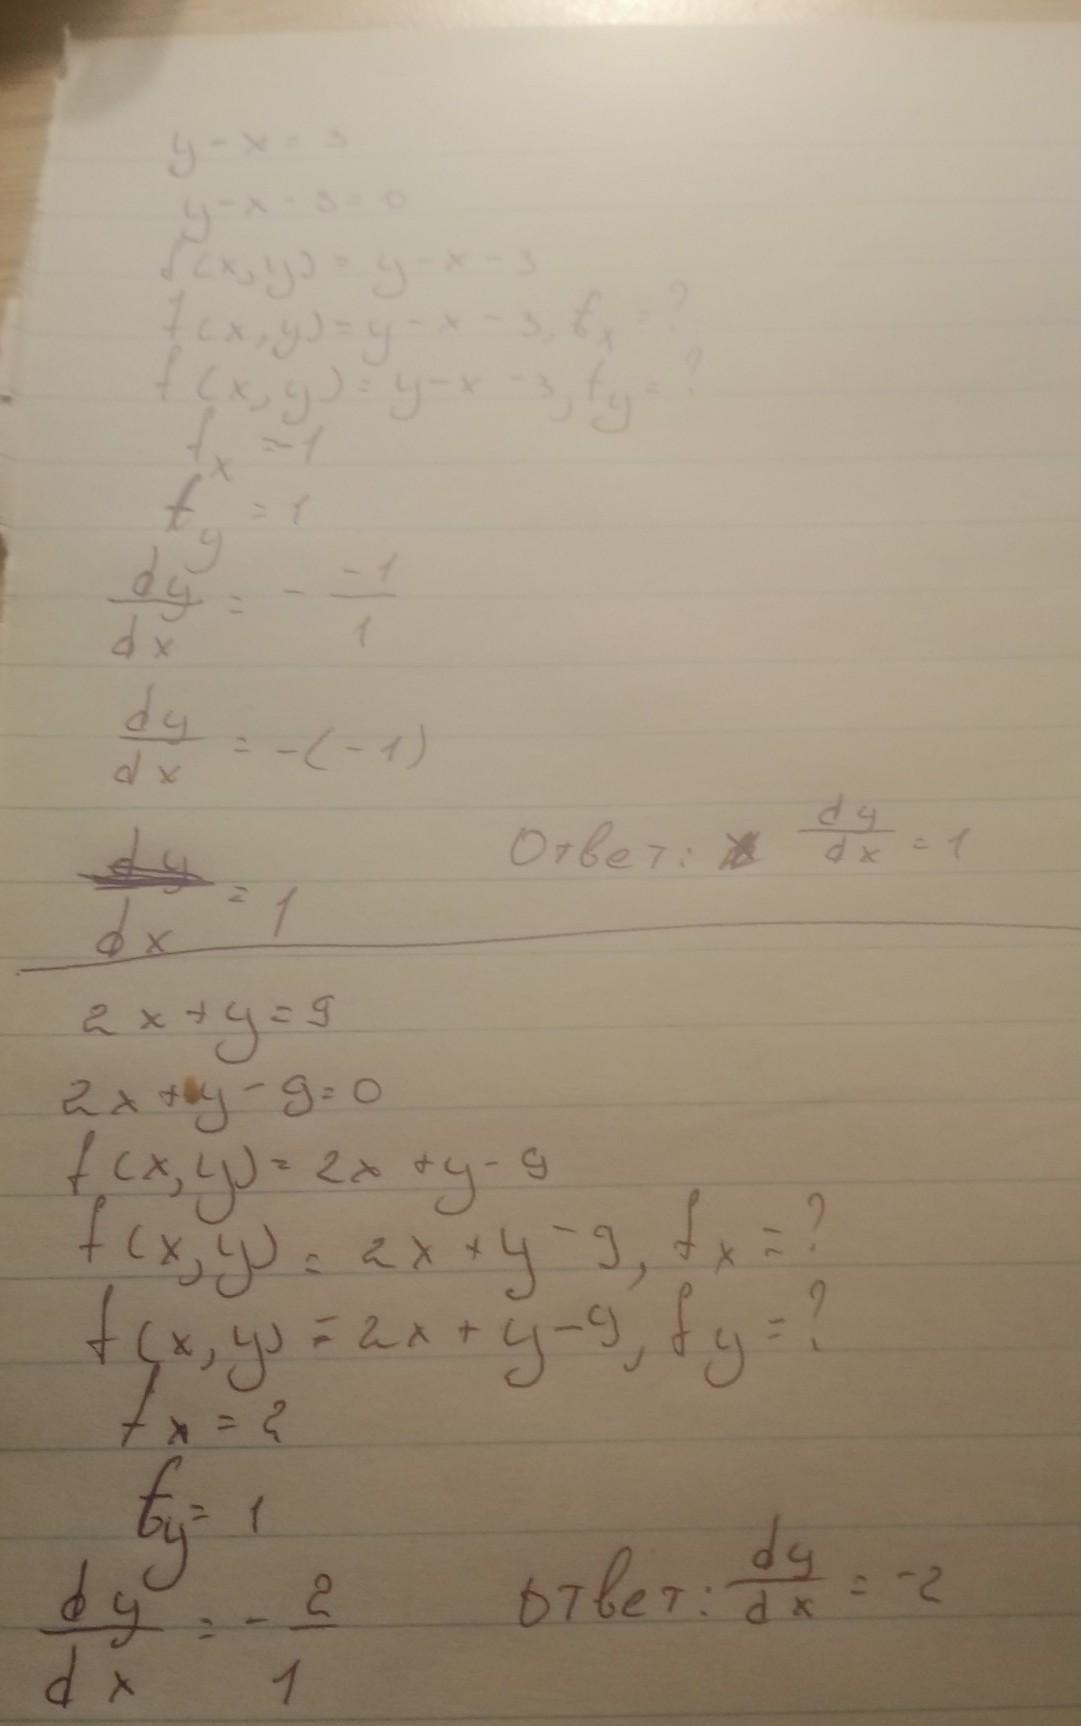 y-x=3
y-x-3=0
f(x,y)=y-x-3
f(x,y)=y-x-3, fx=?
f(x,y)=y-x-3, fy=?
fx=-1
fy=1
dy/dx = - -1/1
dy/dx = -(-1)
dy/dx = 1
Ответ: dy/dx = 1
2x+y=9
2x+y-9=0
f(x,y)=2x+y-9
f(x,y)=2x+y-9, fx=?
f(x,y)=2x+y-9, fy=?
fx=2
fy=1
dy/dx = - 2/1
Ответ: dy/dx = -2